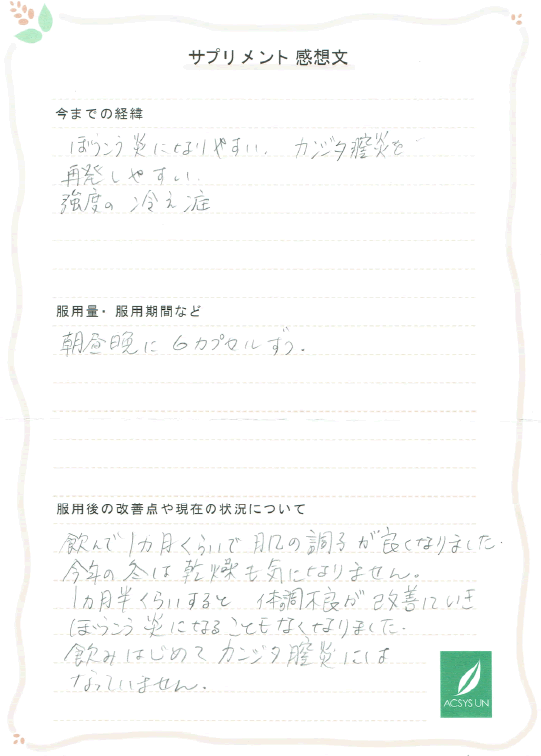 サプリメント感想文
今までの経緯
ぼうこう炎になりやすい。 カンジタ膣炎を
再発しやすい
強度の冷え症
服用量・服用期間など
朝昼晩に6カプセルずつ.
服用後の改善点や現在の状況について
飲んで1カ月くらいで肌の調子が良くなりました.
今年の冬は乾燥も気になりません。
1カ月半くらいすると 体調不良が改善していき
ぼうこう炎になることもなくなりました.
飲みはじめてカンジタ膣炎には
なっていません。
ACSYSUN